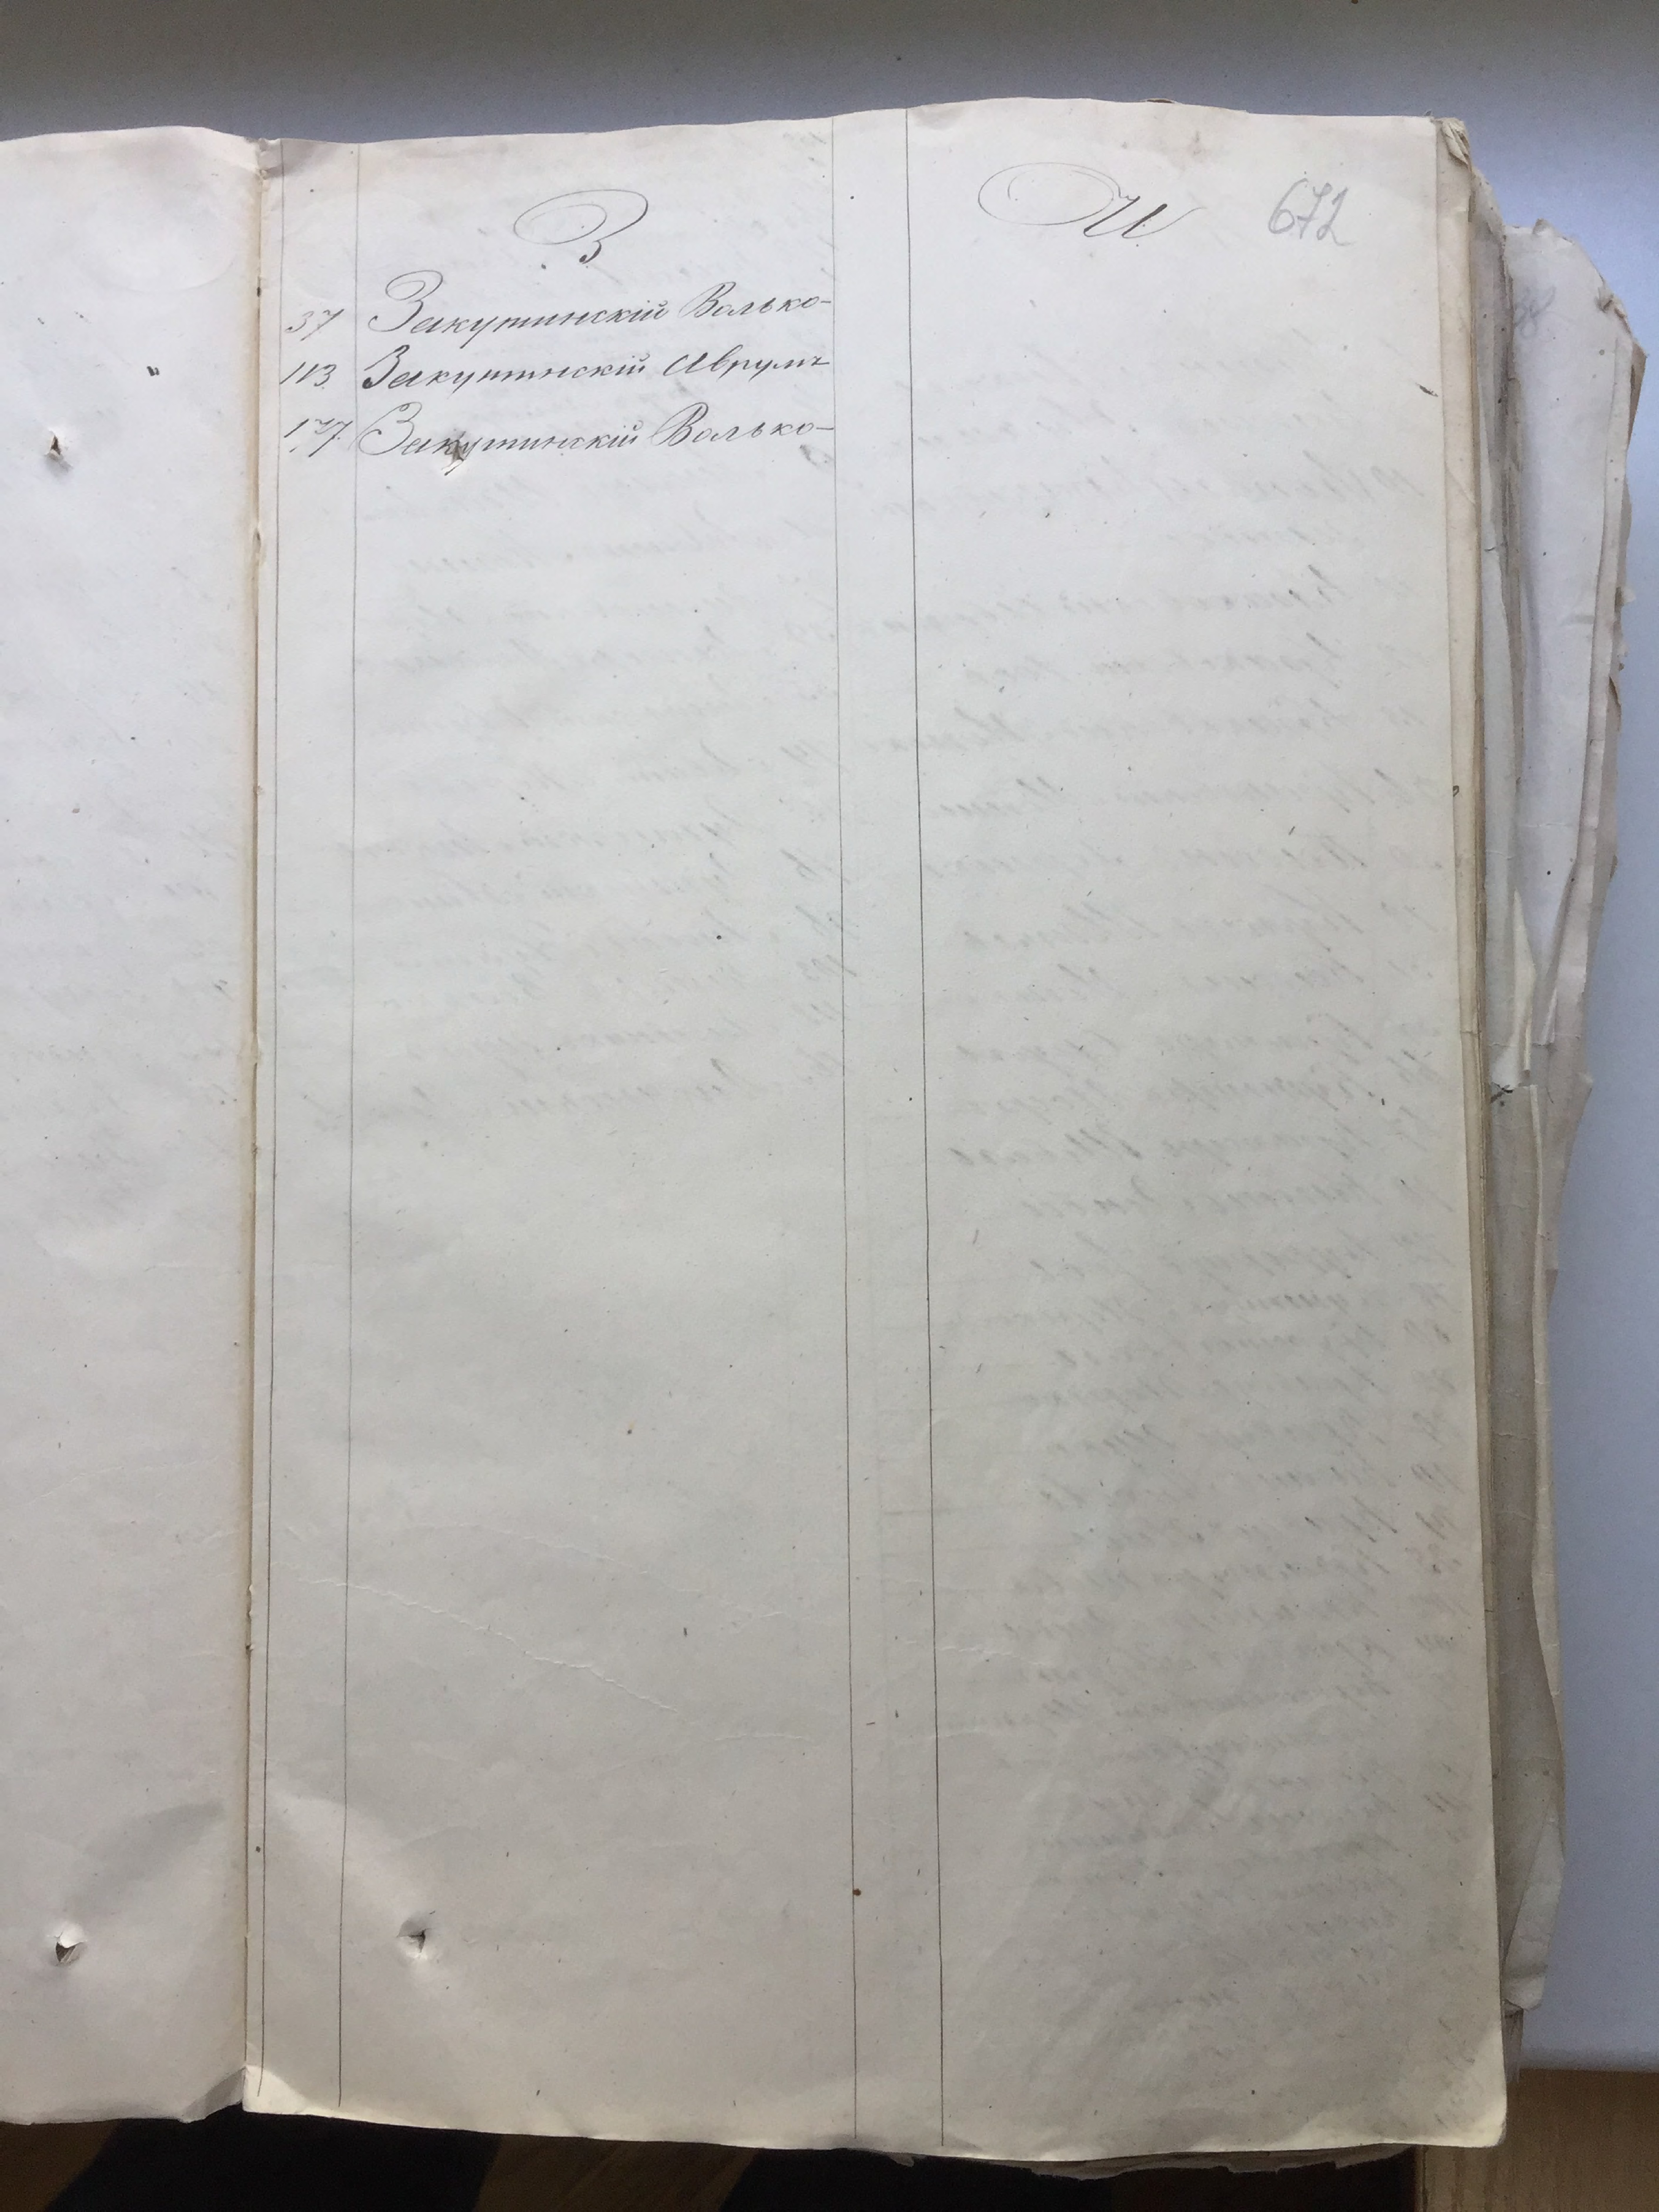 З
И
672
37 Закутинскій Волько
113. Закутинскій Аврумъ
177. Закутинскій Волько